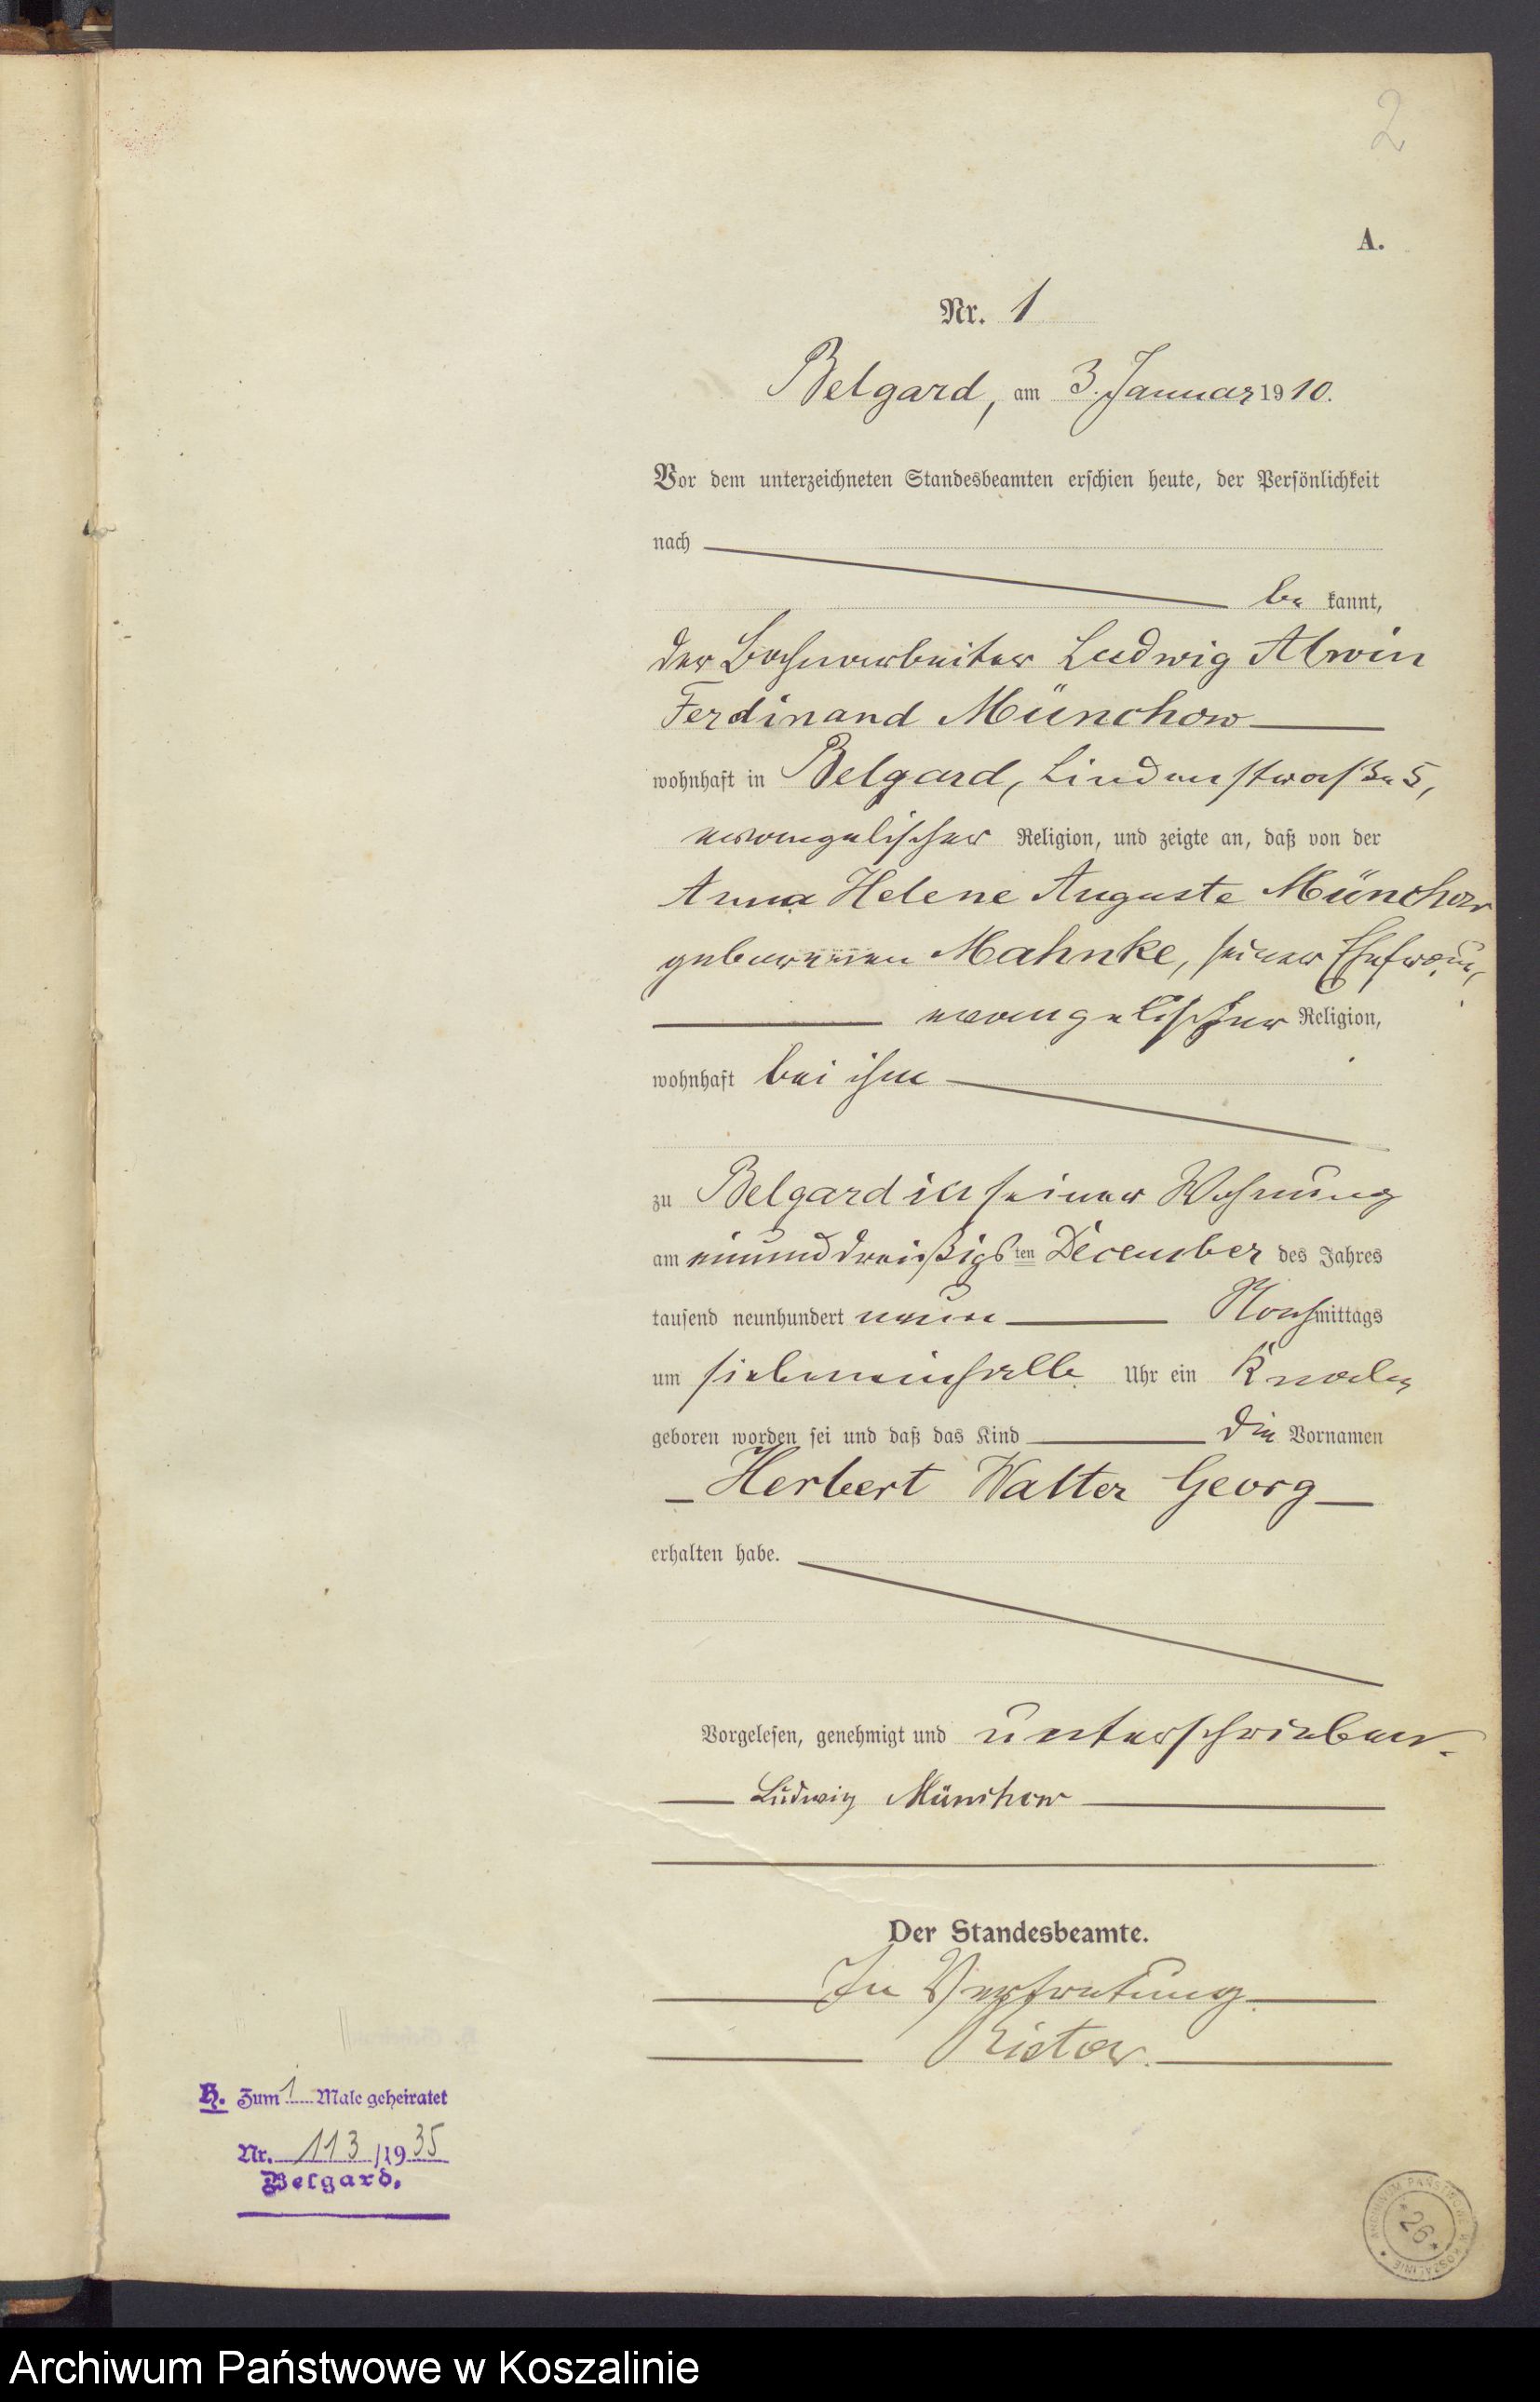 2
A.
Nr. 1
Belgard, am 3. Januar 1910.
Vor dem unterzeichneten Standesbeamten erschien heute, der Persönlichkeit
nach
be kannt,
der Bahnarbeiter Ludwig Alwin
Ferdinand Münchow
wohnhaft in Belgard, Lindenstraße 5,
evangelischer Religion, und zeigte an, daß von der
Anna Helene Auguste Münchow
geborenen Mahnke, seiner Ehefrau,
evangelischer Religion,
wohnhaft bei ihm
zu Belgard in seiner Wohnung
am einunddreißigsten December des Jahres
tausend neunhundert neun Nachmittags
um siebeneinhalb Uhr ein Knabe
geboren worden sei und daß das Kind die Vornamen
Herbert Walter Georg
erhalten habe.
Vorgelesen, genehmigt und unterschrieben.
Ludwig Münchow
Der Standesbeamte.
In Vertretung.
Ristow.
H. Zum 1 Male geheiratet
Nr. 113/1935
Belgard.
ARCHIWUM PAŃSTWOWE W KOSZALINIE
*26*
Archiwum Państwowe w Koszalinie